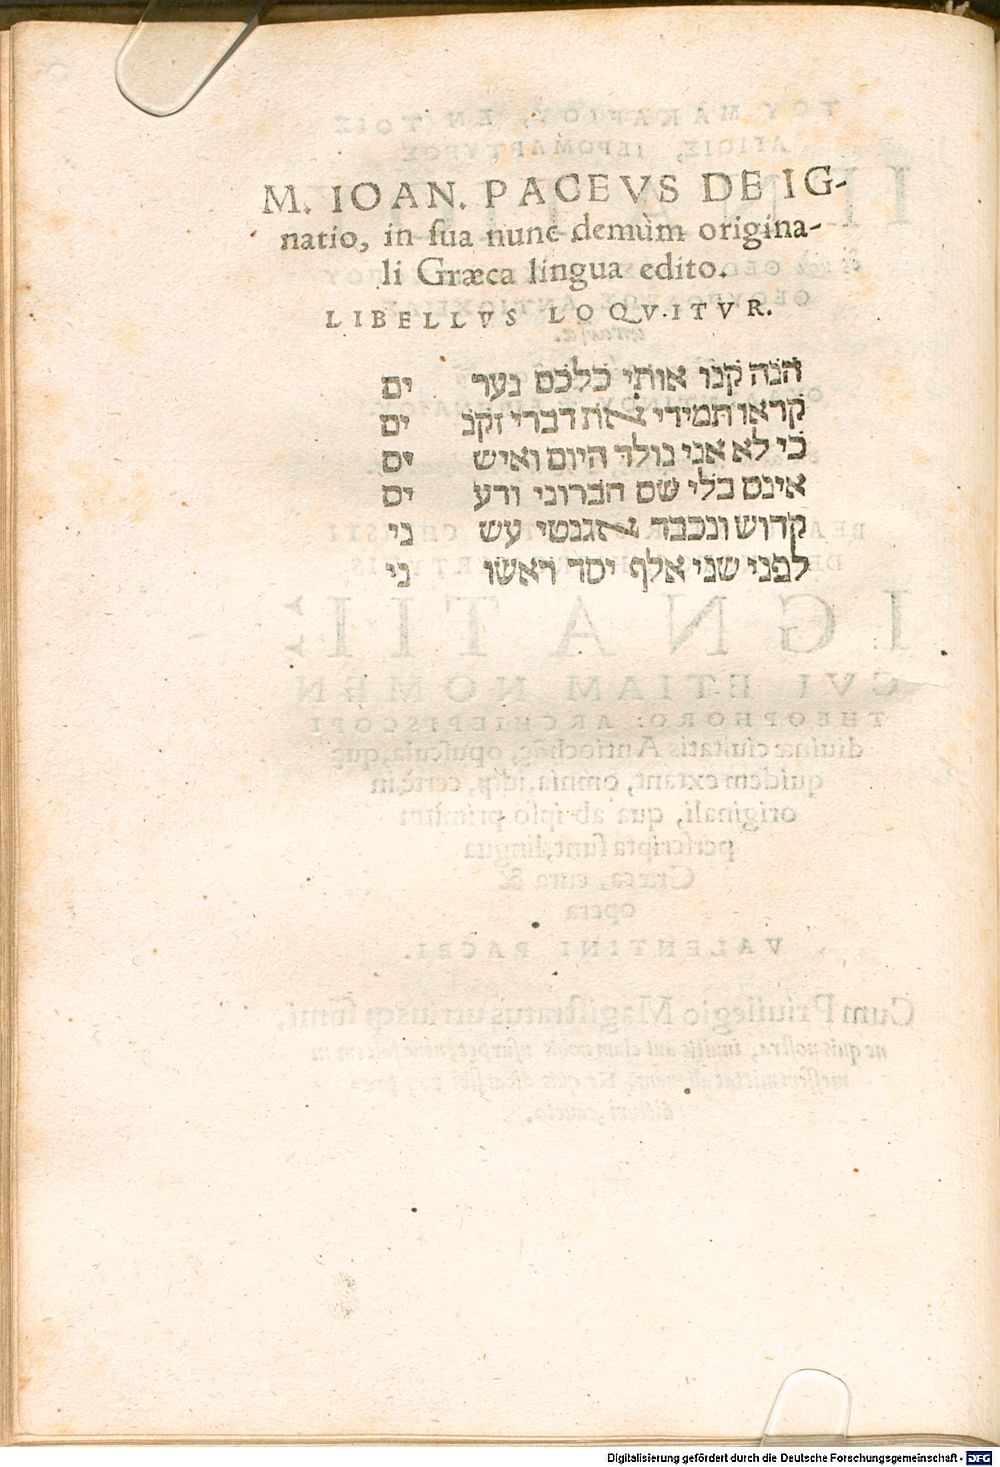 M. IOAN. PACEVS DE IG-
natio, in ſua nunc demùm origina-
li Græca lingua edito.
LIBELLVS LOQVITVR.
הנה קנו אותי כלכם נער ים
קראו תמידי את דברי זקנ ים
כי לא אני נולד היום ואיש ים
אינם בלי שם הברוני ורע ים
קדוש ונכבד אגנטי עש ני
לפני שני אלף יסד ראשו ני
Digitalisierung gefördert durch die Deutsche Forschungsgemeinschaft - DFG